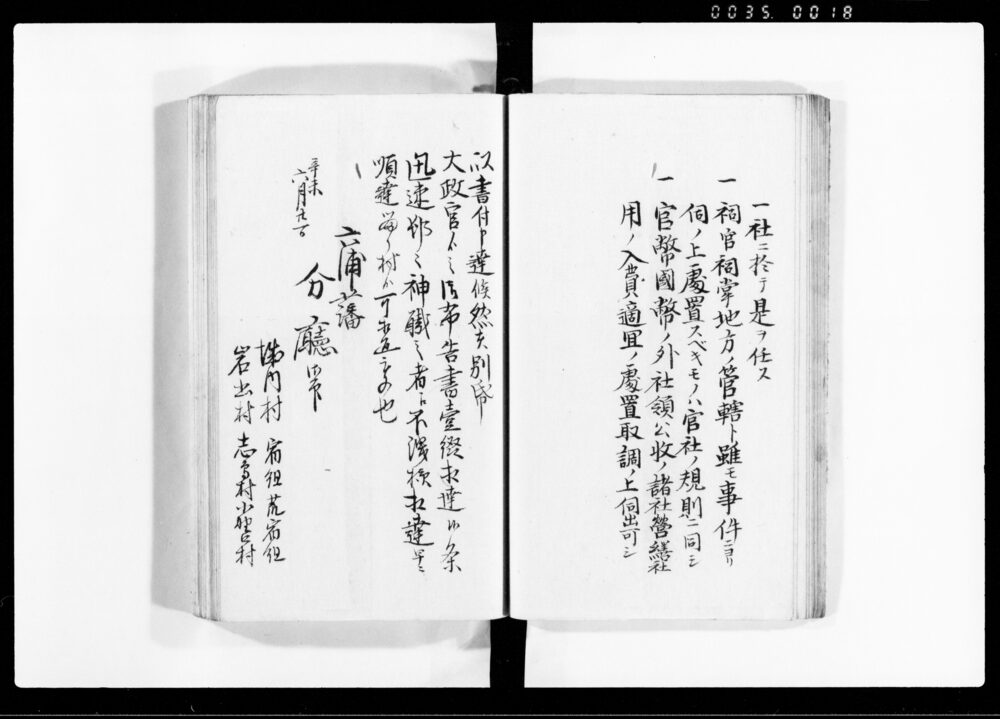 0035. 0018
一社ニ於テ是ヲ任ス
一 祠官祠掌地方ノ管轄ト雖モ事件ニヨリ
伺ノ上處置スベキモノハ官社ノ規則ニ同シ
一 官幣國幣ノ外社領公收ノ諸社營繕社
用ノ入費適宜ノ處置取調ノ上伺出可シ
以書付申達候然者別帋
大政官ゟ之御布告書壹綴相達候条
迅速郷之神職之者江不洩様相達早々
順達留り村ゟ可相返もの也
六浦藩
分廳 印
辛未
六月
堀内村 宿組 荒宿組
岩出村 志 村 小 村